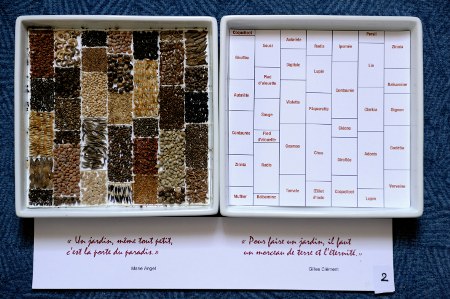 Coquelicot
Giroflée
Aubriète
Centaurée
Zinnia
Muflier
Souci
Pied
d'alouette
Sauge
Radis
Balsamine
Aubriète
Digitale
Violette
Cosmos
Tomate
Radis
Lupin
Pâquerette
Chou
Œillet
d'inde
Ipomée
Centaurée
Cléome
Giroflée
Coquelicot
Persil
Lin
Clarkia
Adonis
Lupin
Zinnia
Balsamine
Oignon
Verveine
« Un jardin, même tout petit,
c'est la porte du paradis. »
Marie Angel
« Pour faire un jardin, il faut
un morceau de terre et l'éternité. »
Gilles Clément
2